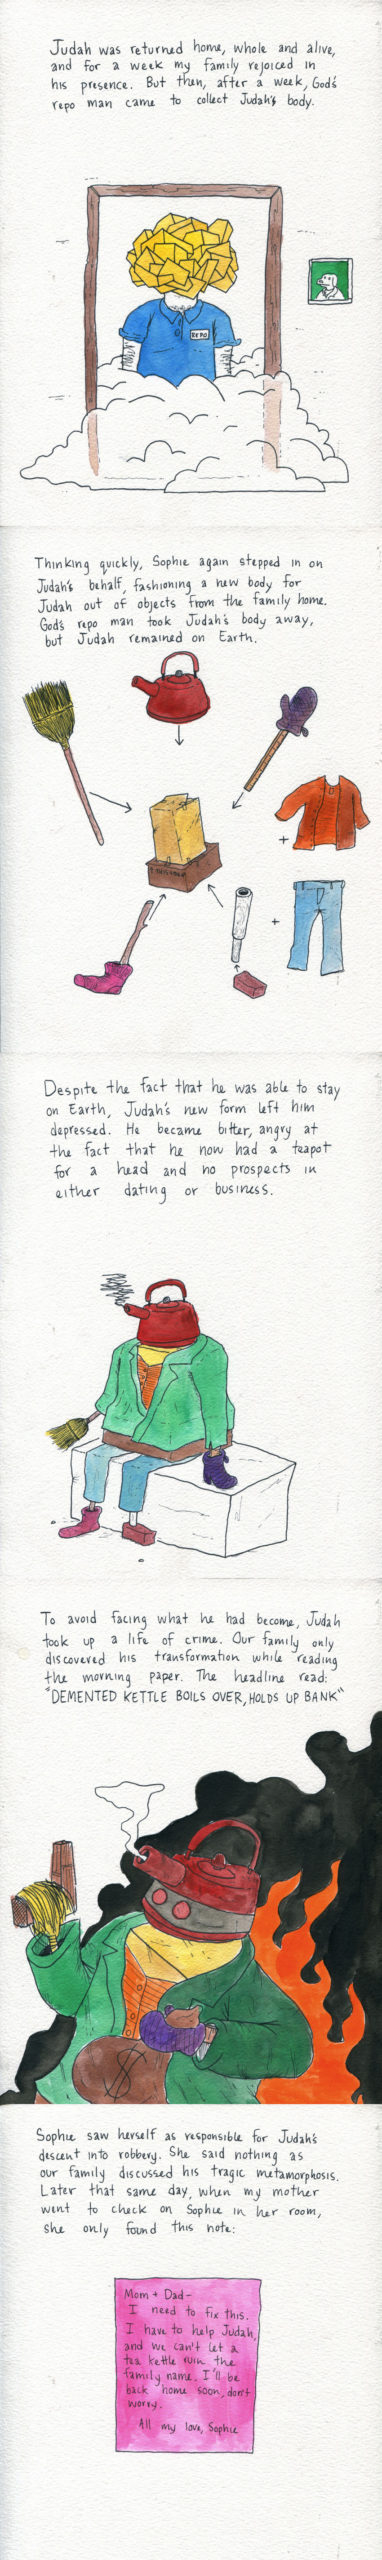 Judah was returned home, whole and alive,
and for a week my family rejoiced in
his presence. But then, after a week, God's
repo man came to collect Judah's body.
REPO
Thinking quickly, Sophie again stepped in on
Judah's behalf, fashioning a new body for
Judah out of objects from the family home.
God's repo man took Judah's body away,
but Judah remained on Earth.
+
+
Despite the fact that he was able to stay
on Earth, Judah's new form left him
depressed. He became bitter, angry at
the fact that he now had a teapot
for a head and no prospects in
either dating or business.
To avoid facing what he had become, Judah
took up a life of crime. Our family only
discovered his transformation while reading
the morning paper. The headline read:
"DEMENTED KETTLE BOILS OVER, HOLDS UP BANK"
$
Sophie saw herself as responsible for Judah's
descent into robbery. She said nothing as
our family discussed his tragic metamorphosis.
Later that same day, when my mother
went to check on Sophie in her room,
she only found this note:
Mom + Dad-
I need to fix this.
I have to help Judah,
and we can't let a
tea kettle ruin the
family name. I'll be
back home soon, don't
worry.
All my love, Sophie